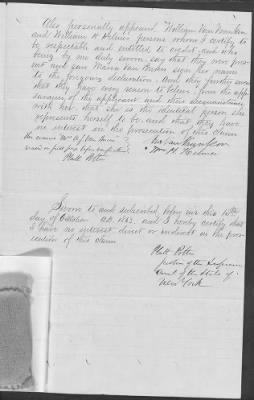 Also personally appeared William Van
and William H Helmer persons whom I certify to
be respectable and entitled to credit, and who
being by me duly sworn say that they were pres
ent and saw Maria Van sign her name
to the foregoing declaration. And they further swear
that they have every reason to believe from the appe
arance of the applicant and their acquaintance
with her that she is the identical person she
represents herself to be, and that they have
no interest in the prosecution of this claim
the name
Platt Potter
Wm H. Helmer
Sworn to and subscribed before me this 15th
day of October A.D. 1863. and I hereby certify that
I have no interest direct or indirect in the pro
secution of this claim
Platt Potter
Justice of the Supreme
Court of the State of
New York